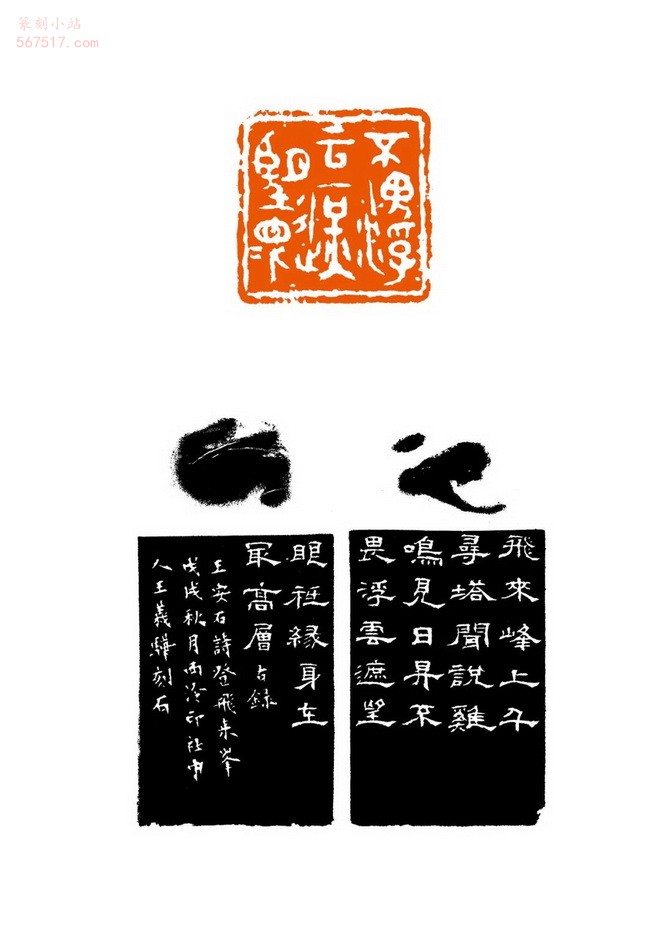 篆刻小站
567517.com
不畏浮
云遮
望眼
飛來峰上千
尋塔聞說雞
鳴見日昇不
畏浮雲遮望
眼祗緣身在
最高層 占錄
王安石詩登飛来峯
戊戌秋月西泠印社中
人王義驊刻石